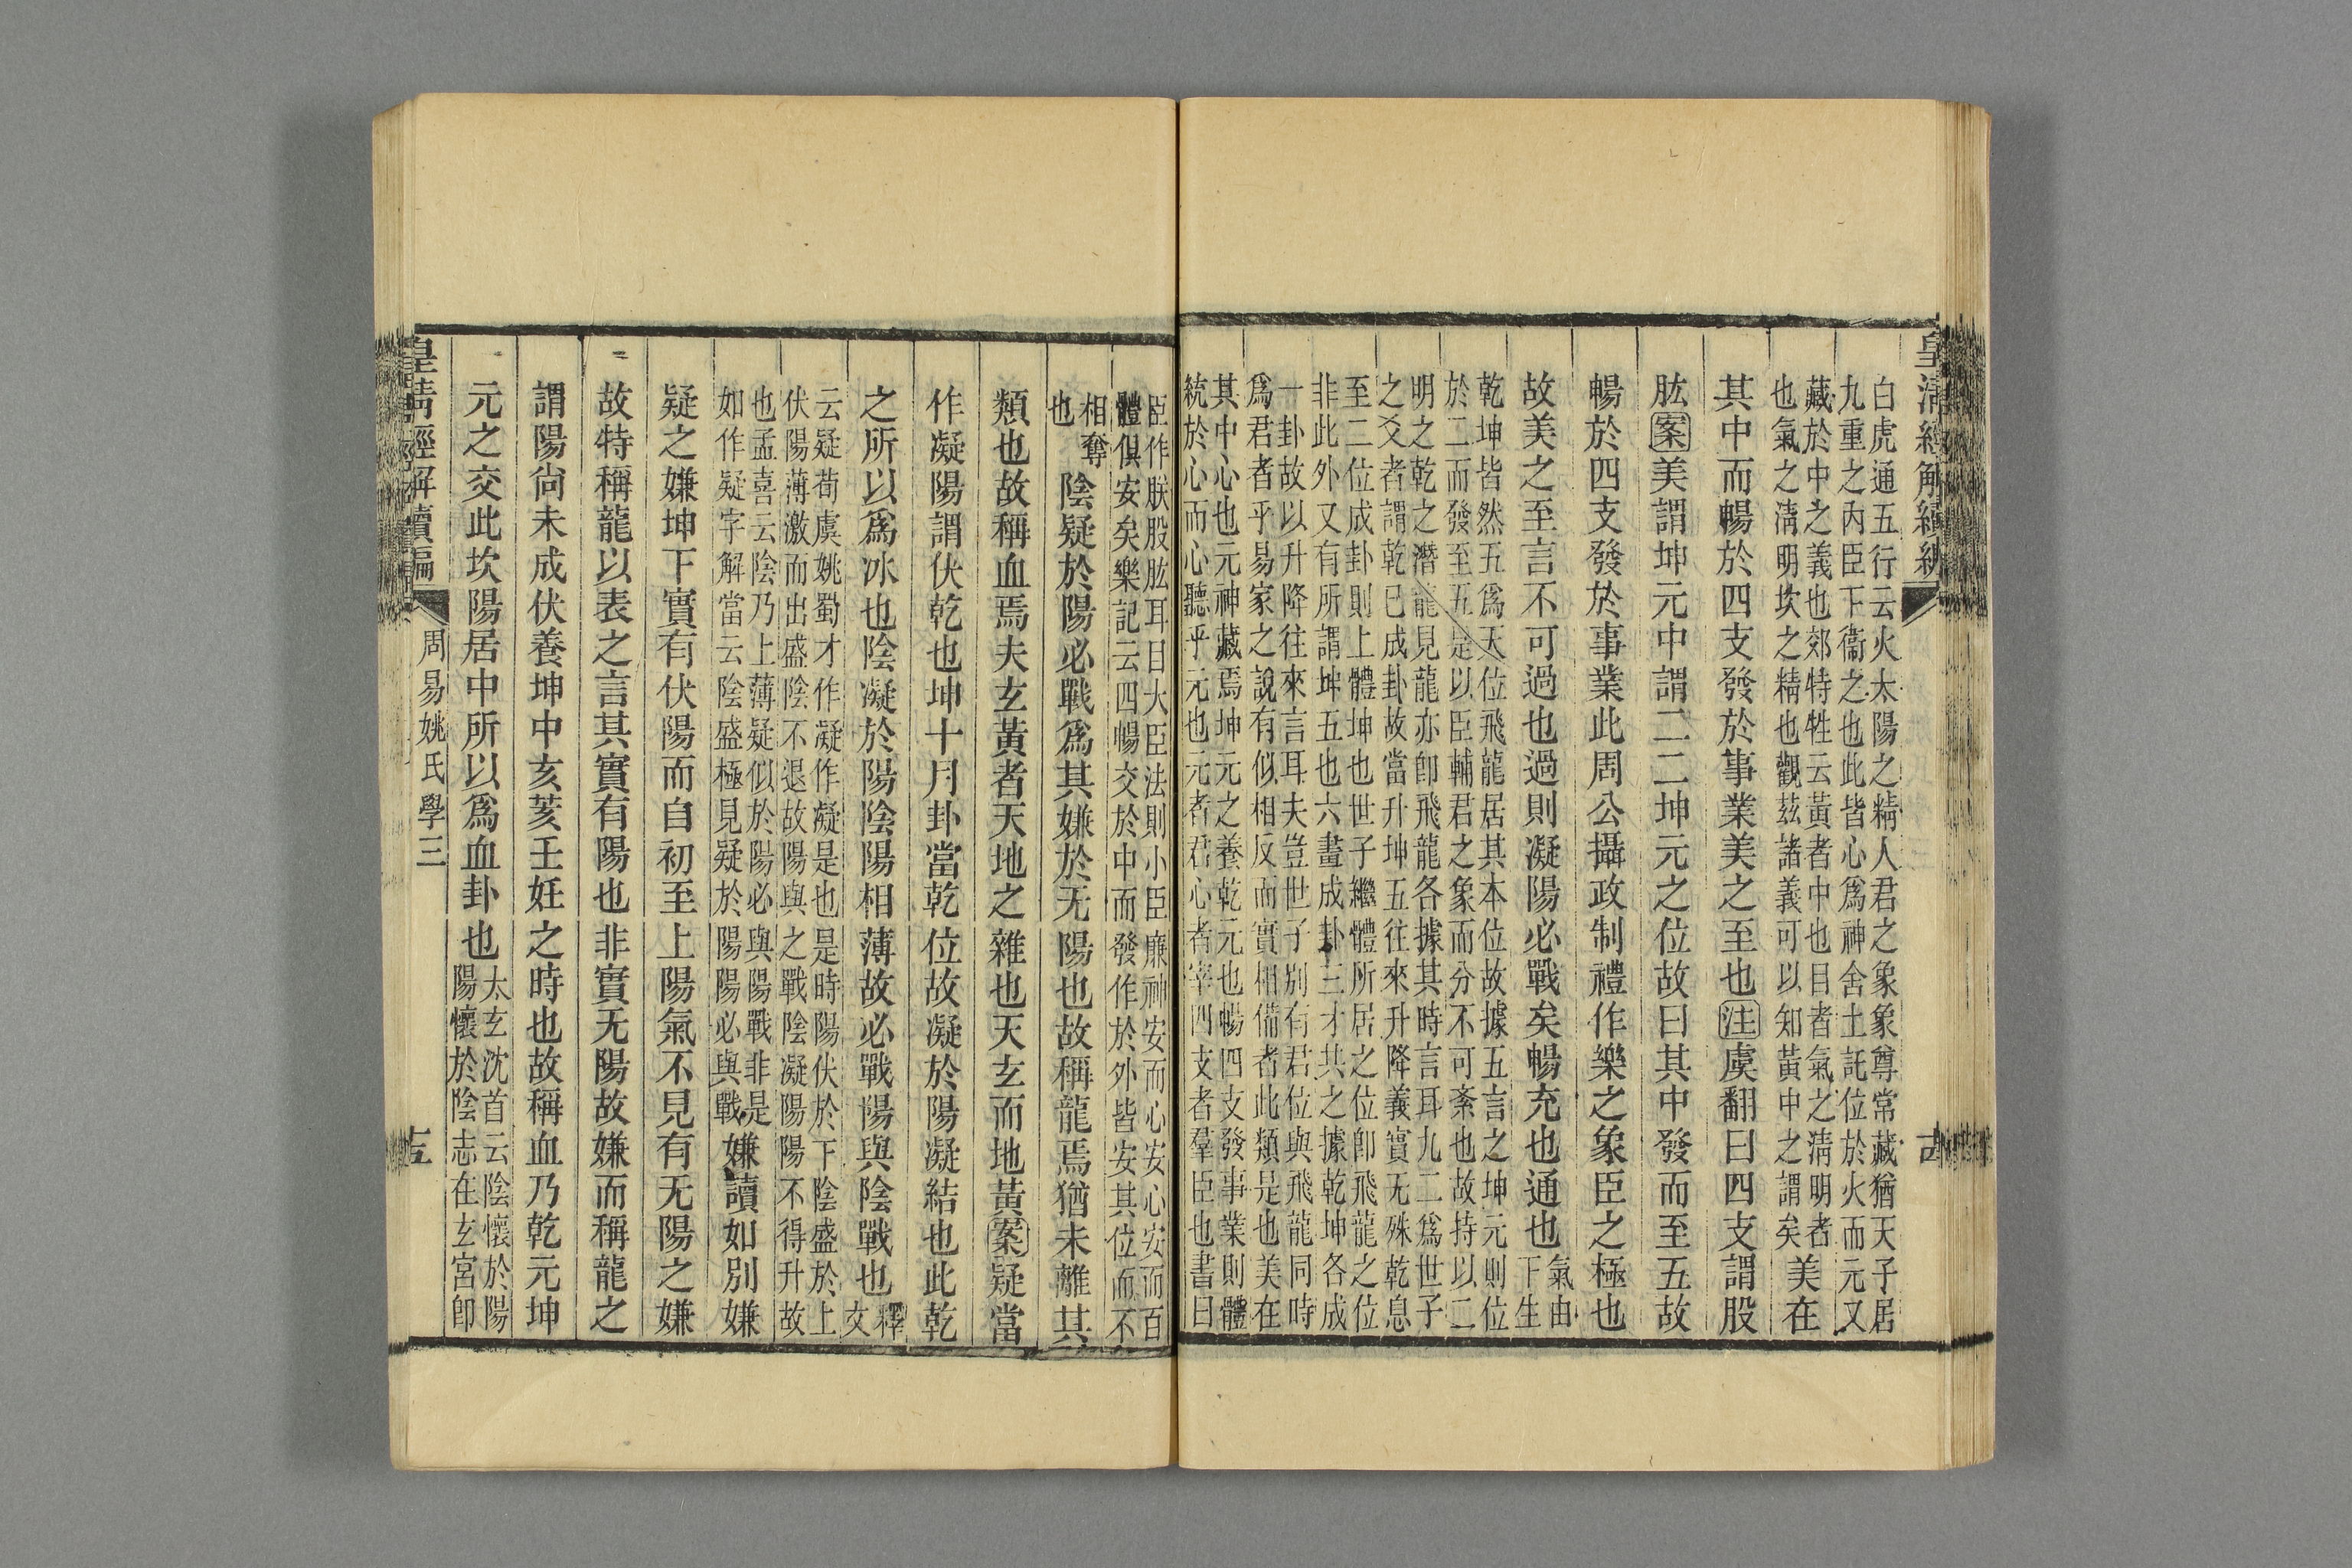 皇清經解續編
白虎通五行云火太陽之精人君之象象尊常藏猶天子居
九重之內臣下衞之也此皆心爲神舍土託位於火而元又
藏於中之義也郊特牲云黃者中也目者氣之淸明者
也氣之淸明坎之精也觀茲諸義可以知黃中之謂矣
美在
其中而暢於四支發於事業美之至也注虞翻曰四支謂股
肱案美謂坤元中謂二二坤元之位故曰其中發而至五故
暢於四支發於事業此周公攝政制禮作樂之象臣之極也
故美之至言不可過也過則凝陽必戰矣暢充也通也
氣由
下生
乾坤皆然五爲天位飛龍居其本位故據五言之坤元則位
於二而發至五是以臣輔君之象而分不可紊也故持以二
明之乾之潛龍見龍亦卽飛龍各據其時言耳九二爲世子
之爻者謂乾已成卦故當升坤五往來升降義實无殊乾息
至二位成卦則上體坤也世子繼體所居之位卽飛龍之位
非此外又有所謂坤五也六畫成卦三才共之據乾坤各成
一卦故以升降往來言耳夫豈世子別有君位與飛龍同時
爲君者乎易家之說有似相反而實相備者此類是也美在
其中心也元神藏焉坤元之養乾元也暢四支發事業則體
統於心而心聽乎元也元者君心者宰四支者羣臣也書曰
臣作朕股肱耳目大臣法則小臣廉神安而心安心安而百
體俱安矣樂記云四暢交於中而發作於外皆安其位而不
相奪
也
陰疑於陽必戰爲其嫌於无陽也故稱龍焉猶未離其
類也故稱血焉夫玄黃者天地之雜也天玄而地黃案疑當
作凝陽謂伏乾也坤十月卦當乾位故凝於陽凝結也此乾
之所以爲冰也陰凝於陽陰陽相薄故必戰陽與陰戰也
釋
文
云疑荀虞姚蜀才作凝作凝是也是時陽伏於下陰盛於上
伏陽薄激而出盛陰不退故陽與之戰陰凝陽陽不得升故
也孟喜云陰乃上薄疑似於陽必與陽戰非是
如作疑字解當云陰盛極見疑於陽陽必與戰
嫌讀如別嫌
疑之嫌坤下實有伏陽而自初至上陽氣不見有无陽之嫌
故特稱龍以表之言其實有陽也非實无陽故嫌而稱龍之
謂陽尙未成伏養坤中亥荄壬妊之時也故稱血乃乾元坤
元之交此坎陽居中所以爲血卦也
太玄沈首云陰懷於陽
陽懷於陰志在玄宮卽
皇淸經解續編
周易姚氏學三